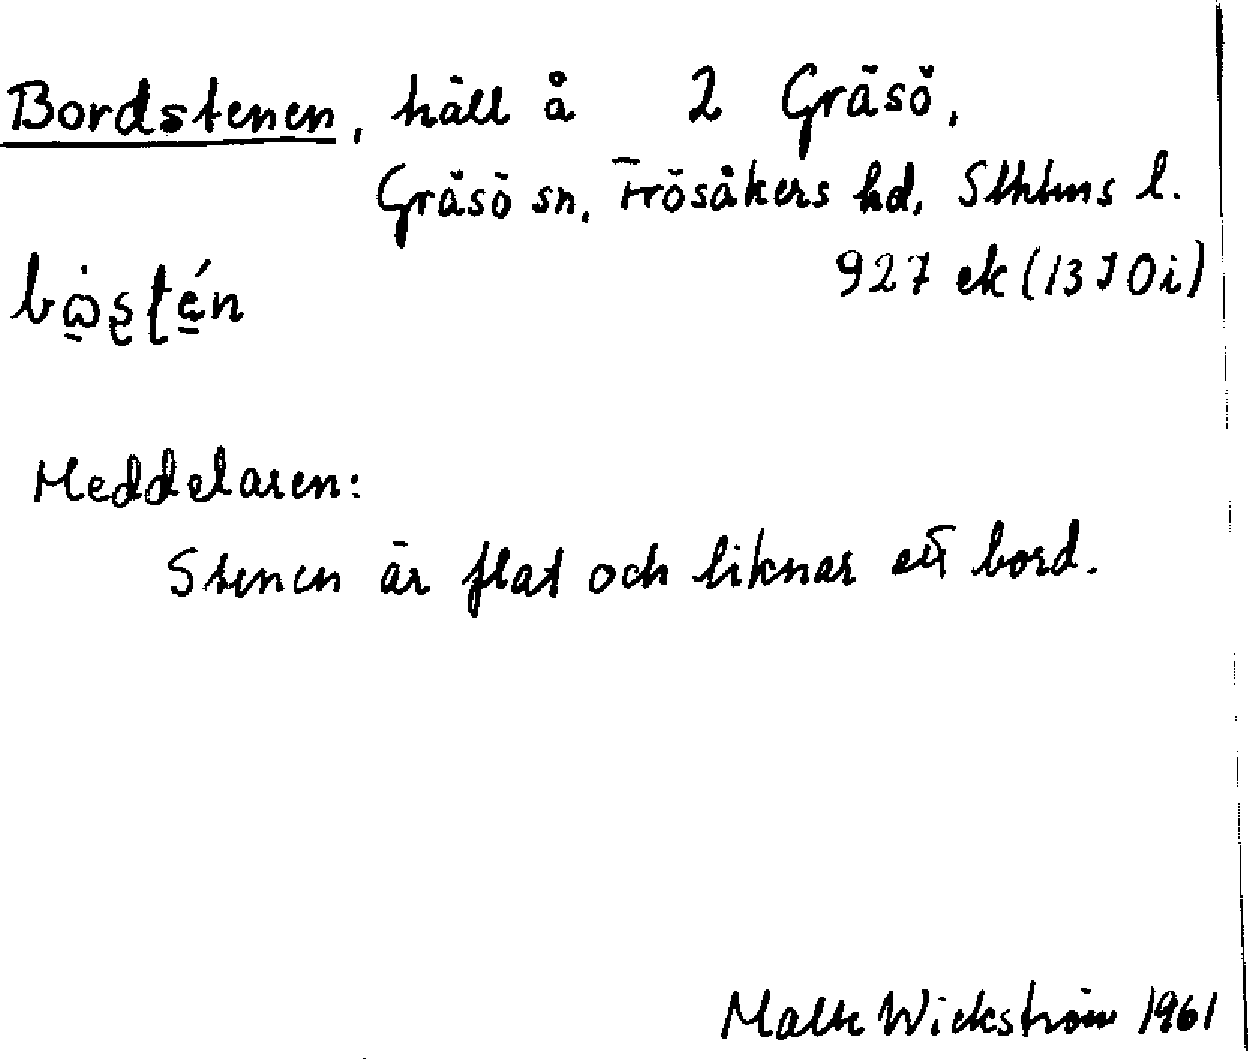 Bordstenen, häll å 2 Gräsö,
Gräsö sn, Frösåkers hd, Sthlms l.
927 ek (13 I 0i)
Meddelaren:
Stenen är flat och liknar ett bord.
Wickström 1961